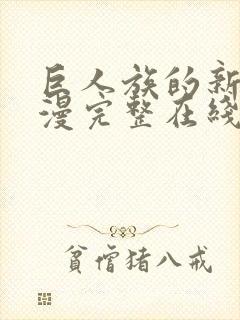 巨人族的新
漫完整在綫
貧僧猪八戒